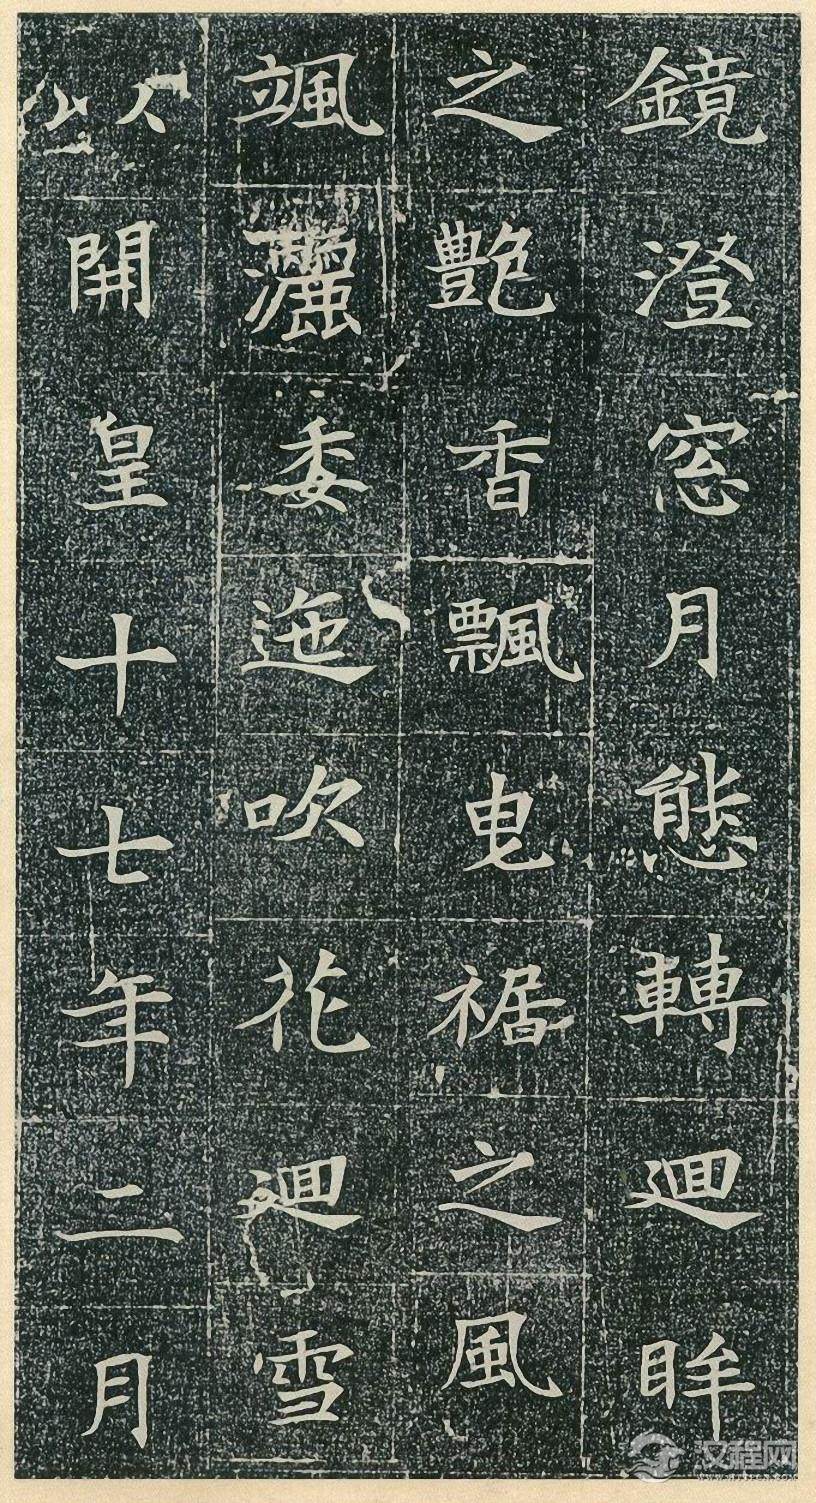 鏡澄窓月態轉迴眸
之艷香飄曳裾之風
颯灑委迤吹花迴雪
以開皇十七年二月
汉程网